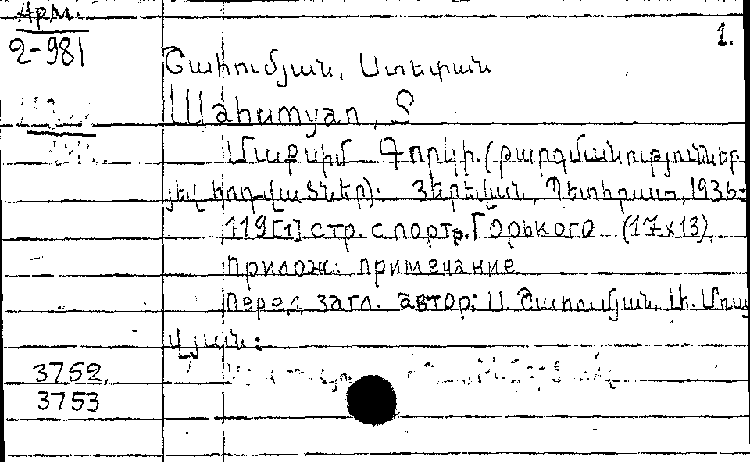 Арм.
2-981
1.
Շահումյան, Ստեփան
Шаhитyan, S
Մաքսիմ Գորկի. (թարգմանություններ
յեվ հոդվածներ): Յերեվան, Պետհրատ, 1936:
119[1] стр. с портр. Горького (17x13)
Прилож: примечание
Перед загл. автор: Ս. Շահումյան,
վյան:
3752,
3753